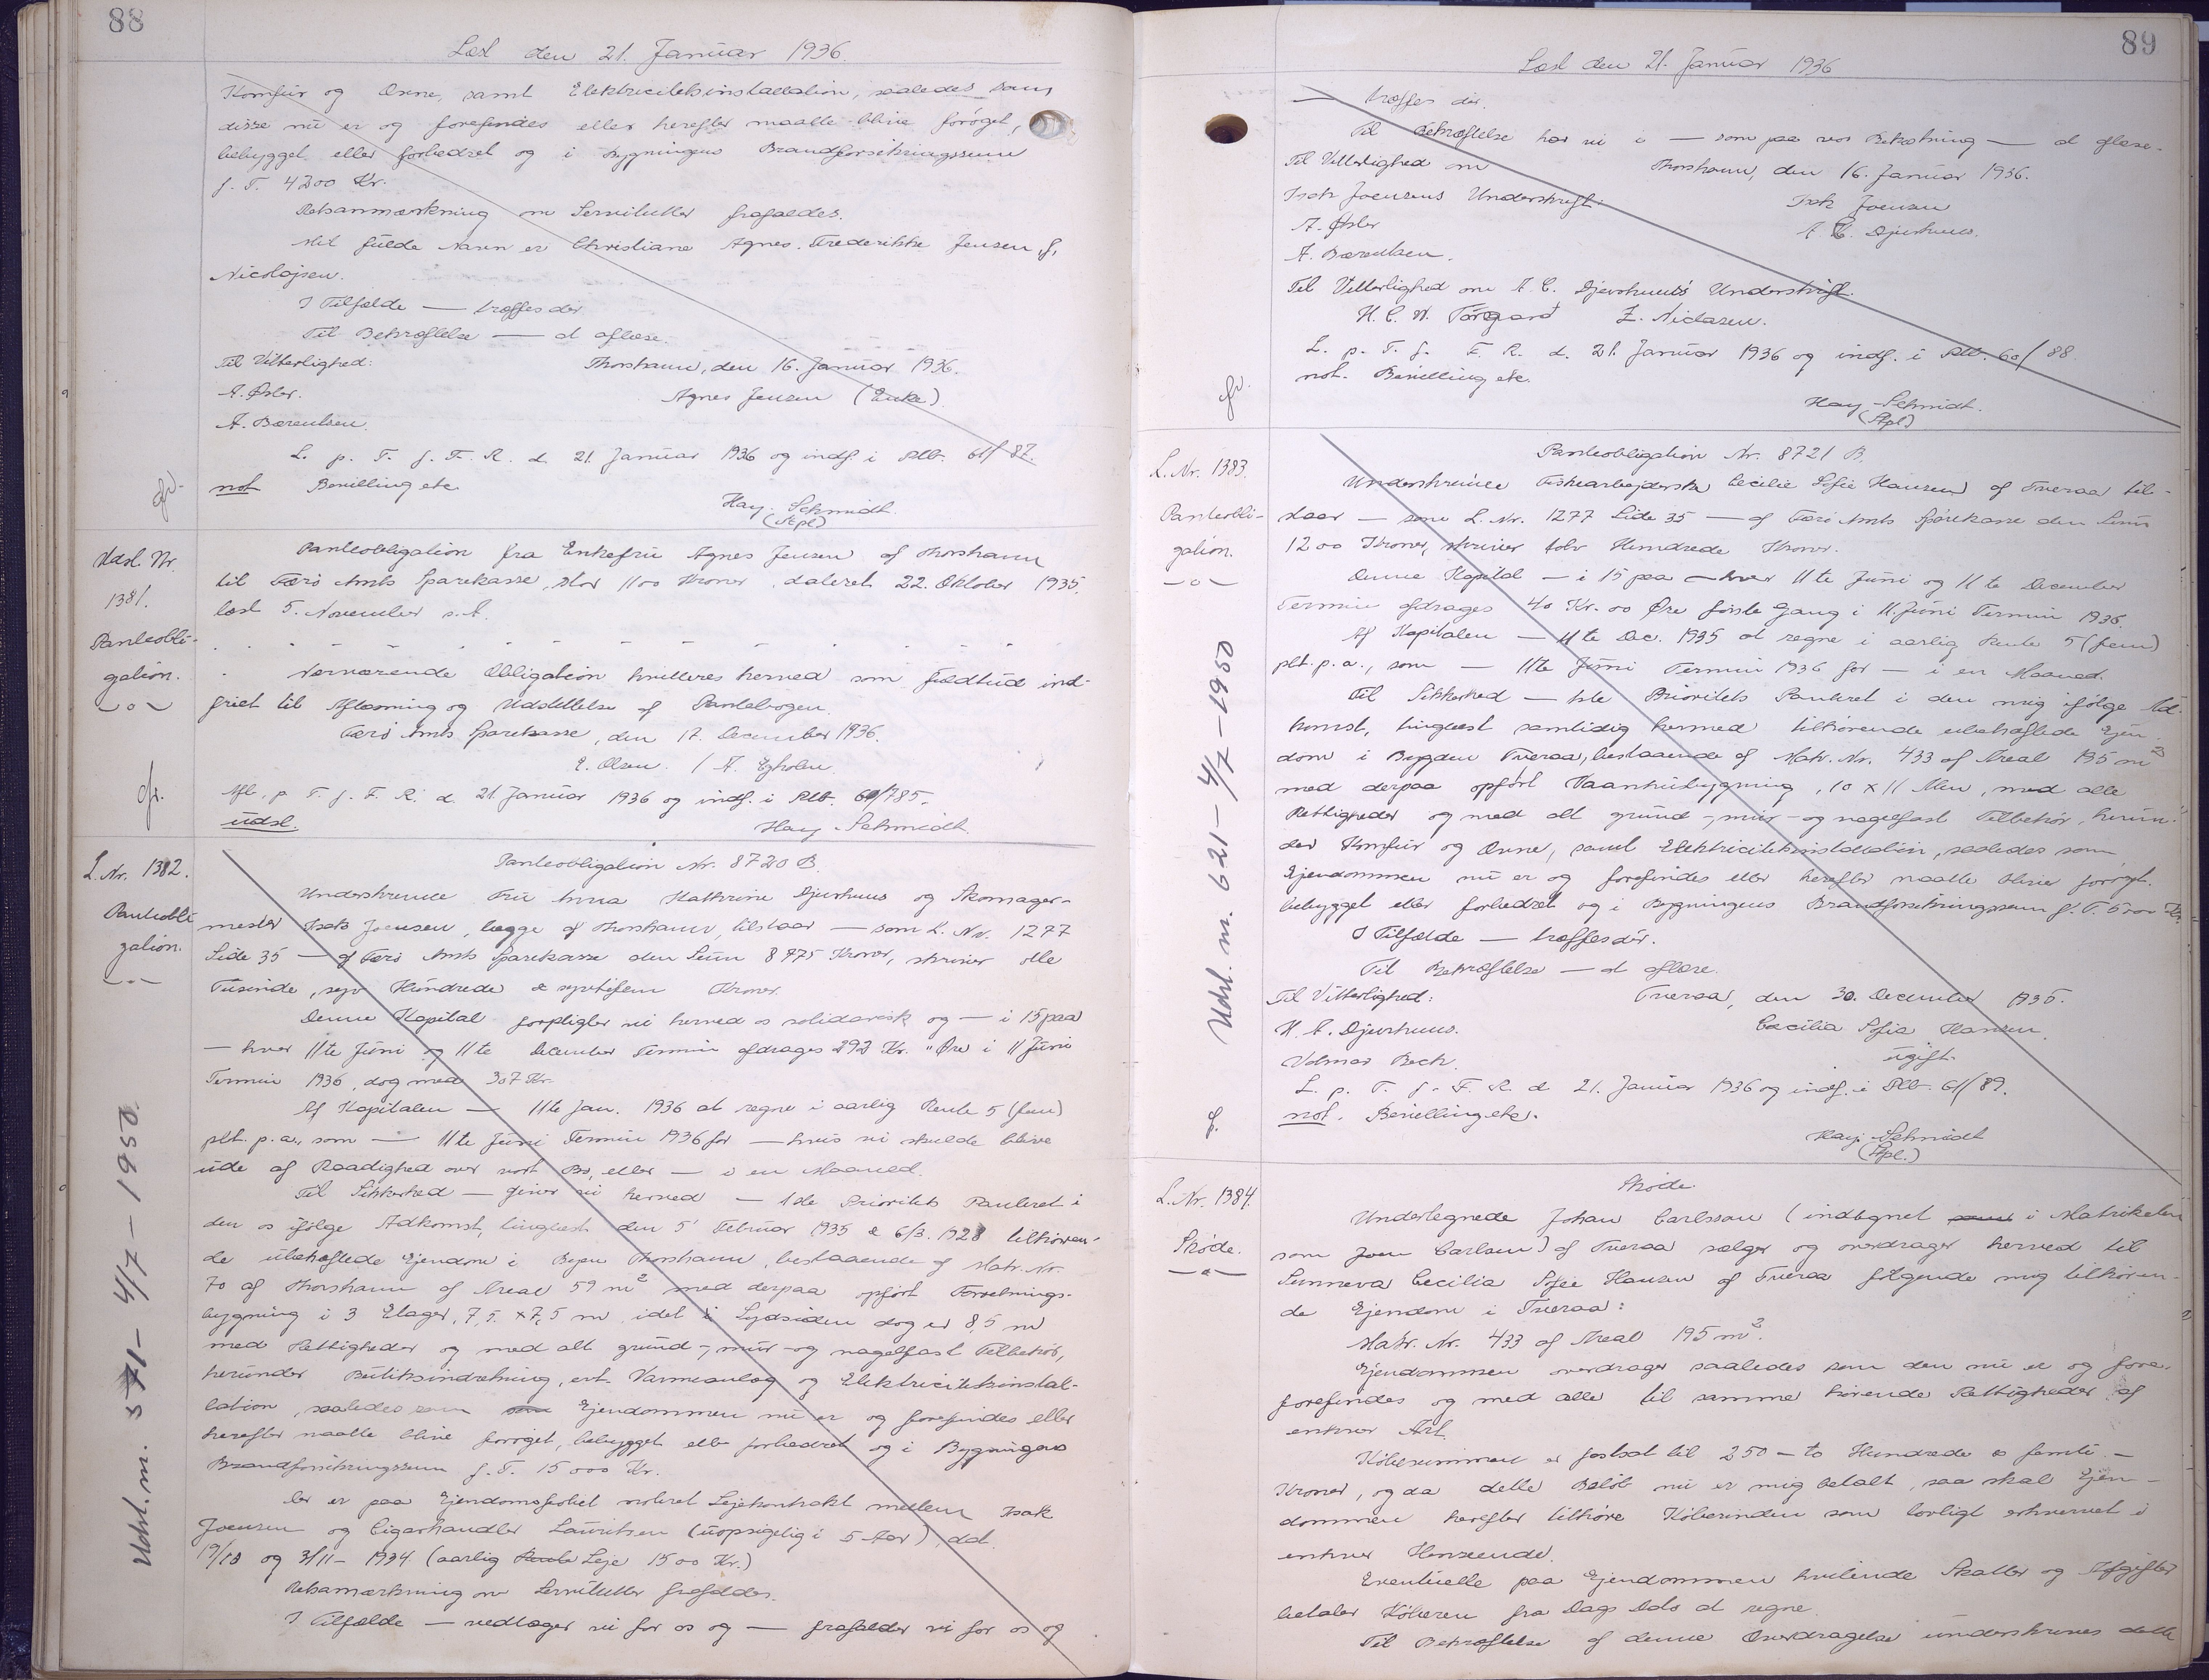 88
Læst den 21. Januar 1936.
Komfur og Ovne, samt Elektricitetsinstallation, saaledes som
disse nu er og forefindes eller herefter maatte blive forøget,
bebygget eller forbedret og i Bygningens Brandforsikringssum
f. T. 4200 Kr.
Retsanmærkning om Servitutter frafaldes.
Mit fulde Navn er Christiane Agnes Frederikke Jensen f.
Nicolajsen.
I Tilfælde — træffes dér
Til Bekræftelse — at aflæse.
Til Vitterlighed: Thorshavn, den 16. Januar 1936.
A. Øster. Agnes Jensen (Enke)
A. Bærentsen.
L. p. T. f. F. R. d. 21. Januar 1936 og indf. i Ptb. 61/87.
not Bevilling etc.
Hay. Schmidt.
(Stpl)
Udsl. Nr.
1381.
Panteobli-
gation.
—o—
Panteobligation fra Enkefru Agnes Jensen af Thorshavn
til Færø Amts Sparekasse, stor 1100 Kroner, dateret 22. Oktober 1935,
læst 5. November s. A.
Nærværende Obligation kvitteres herved som fuldtud ind-
friet til Aflæsning og Udslettelse af Pantebogen.
Færø Amts Sparekasse, den 17. December 1936.
E. Olsen. / A. Egholm
Afl. p. T. f. F. R. d. 21 Januar 1936 og indf. i Ptb. 60/785.
udsl. Hay. Schmidt
L. Nr. 1382.
Panteobli
gation.
—o—
Udsl. m. 571 - 4/7 - 1950.
Panteobligation Nr. 8720 B.
Underskrevne Fru Anna Kathrine Djurhuus og Skomager-
mester Isak Joensen, begge af Thorshavn, tilstaar — som L. Nr. 1277
Side 35 — af Færø Amts Sparekasse den Sum 8775 Kroner, skriver otte
Tusinde, syv Hundrede & syvtifem Kroner.
Denne Kapital forpligter vi herved os solidarisk og — i 15 paa
— hver 11te Juni og 11te December Termin afdrages 292 Kr. " Øre i 11 Juni
Termin 1936, dog med 307 Kr.
Af Kapitalen — 11te Jan. 1936 at regne i aarlig Rente 5 (fem)
pCt. p. a., som — 11te Juni Termin 1936 for — hvis vi skulde blive
ude af Raadighed over vort Bo, eller — i en Maaned.
Til Sikkerhed — giver vi herved — 1ste Prioritets Panteret i
den os ifølge Adkomst, tinglæst den 5' Februar 1935 & 6/3. 1928 tilhøren-
de ubehæftede Ejendom i Byen Thorshavn, bestaaende af Matr. Nr.
70 af Thorshavn af Areal 59 m² med derpaa opført Forretnings-
bygning i 3 Etager, 7,5 × 7,5 m, idet Sydsiden dog er 8,5 m
med Rettigheder og med alt grund-, mur- og nagelfast Tilbehør,
herunder Butiksindretning, evt. Varmeanlæg og Elektricitetsinstal-
lation, saaledes som Ejendommen nu er og forefindes eller
herefter maatte blive forøget, bebygget eller forbedret og i Bygningens
Brandforsikringssum f. T. 15000 Kr.
Der er paa Ejendomsfoliet noteret Lejekontrakt mellem Isak
Joensen og Cigarhandler Lauritsen (uopsigelig i 5 Aar), dat.
19/10 og 3/11 - 1934 (aarlig Leje 1500 Kr.)
Retsanmærkning om Servitutter frafaldes.
I Tilfælde — vedtager vi for os og — frafalder vi for os og
89
Læst den 21. Januar 1936
— træffes dér.
Til Bekræftelse har vi — som paa vor Bekostning — at aflæse.
Til Vitterlighed om Thorshavn, den 16. Januar 1936.
Isak Joensens Underskrift: Isak Joensen
A. Øster A. C. Djurhuus.
A. Bærentsen.
Til Vitterlighed om A. C. Djurhuus's Underskrift.
H. C. W. Tórgarð Z. Niclasen.
L. p. T. f. F. R. d. 21. Januar 1936 og indf. i Ptb. 60/88.
not. Bevilling etc.
Hay. Schmidt.
(Stpl)
L. Nr. 1383.
Panteobli-
gation.
—o—
Udsl. m. 621 - 4/7 - 1950
Panteobligation Nr. 8721 B.
Underskrevne Fiskearbejderske Cecilie Sofie Hansen af Tveraa til-
staar — som L. Nr. 1277 Side 35 — af Færø Amts Sparekasse den Sum
1200 Kroner, skriver tolv Hundrede Kroner.
Denne Kapital — i 15 paa — hver 11te Juni og 11te December
Termin afdrages 40 Kr. 00 Øre første Gang i 11. Juni Termin 1936.
Af Kapitalen — 11te Dec. 1935 at regne i aarlig Rente 5 (fem)
pCt. p. a., som — 11te Juni Termin 1936 for — i en Maaned.
Til Sikkerhed — 1ste Prioritets Panteret i den mig ifølge Ad-
komst, tinglæst samtidig hermed tilhørende ubehæftede Ejen-
dom i Bygden Tveraa, bestaaende af Matr. Nr. 433 af Areal 195 m²
med derpaa opført Vaaanhusbygning, 10 × 11 Alen, med alle
Rettigheder og med alt grund-, mur- og nagelfast Tilbehør, herun-
der Komfur og Ovne, samt Elektricitetsinstallation, saaledes som
Ejendommen nu er og forefindes eller herefter maatte bliver forøget.
bebygget eller forbedret og i Bygningens Brandforsikringssum f. T. 5700 Kr.
I Tilfælde — træffes dér.
Til Bekræftelse — at aflæse.
Til Vitterlighed: Tveraa, den 30. December 1935.
H. C. Djurhuus. Cæcilia Sofie Hansen.
Volmar Bech. ugift.
L. p. T. f. F. R. d 21. Januar 1936 og indf. i Ptb. 61/89.
not. Bevilling etc.
Hay. Schmidt
(Stpl.)
L. Nr. 1384.
Skøde.
—o—
Skøde.
Undertegnede Johan Carlsson (indtegnet i Matrikelen
som Joen Carlsen) af Tveraa sælger og overdrager herved til
Sunneva Cecilia Sofie Hansen af Tveraa følgende mig tilhøren-
de Ejendom i Tveraa:
Matr. Nr. 433 af Areal 195 m².
Ejendommen overdrages saaledes som den nu er og fore-
forefindes og med alle til samme hørende Rettigheder af
enhver Art.
Købesummen er fastsat til 250 — to Hundrede & femti —
Kroner, og da dette Beløb nu er mig betalt, saa skal Ejen-
dommen herefter tilhøre Køberinden som lovligt erhvervet i
enhver Henseende.
Eventuelle paa Ejendommen hvilende Skatter og Afgifter
betaler Køberen fra Dags Dato at regne.
Til Bekræftelse af denne Overdragelse underskrives dette